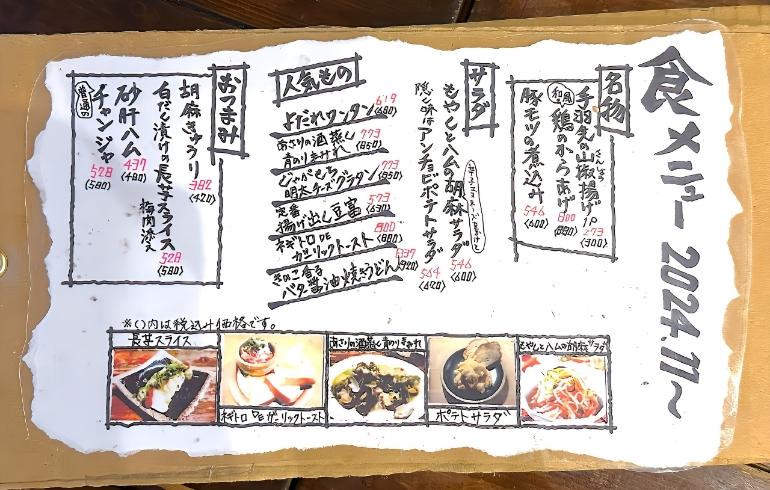 食メニュー 2024.11〜
名物
手羽先の山椒揚げ 1P 273 〈300〉
さんしょう
和風 鶏のからあげ 800 〈880〉
豚モツの煮込み 546 〈600〉
サラダ
もやしとハムの胡麻サラダ 546 〈600〉
隠し味はアンチョビポテトサラダ 564 〈620〉
人気もの
よだれワンタン 619 〈680〉
あさりの酒蒸し
青のりまみれ 773 〈850〉
じゃがもち
明太チーズグラタン 773 〈850〉
定番
揚げ出し豆富 573 〈630〉
ネギトロ DE
ガーリックトースト 800 〈880〉
きのこ香る
バター醤油焼きうどん 837 〈920〉
おつまみ
胡麻きゅうり 382 〈420〉
白だし漬けの長芋スライス
梅肉添え 528 〈580〉
砂肝ハム 437 〈480〉
普通の チャンジャ 528 〈580〉
※〈〉内は税込み価格です。
長芋スライス
ネギトロ DE ガーリックトースト
あさりの酒蒸し青のりまみれ
ポテトサラダ
もやしとハムの胡麻サラダ